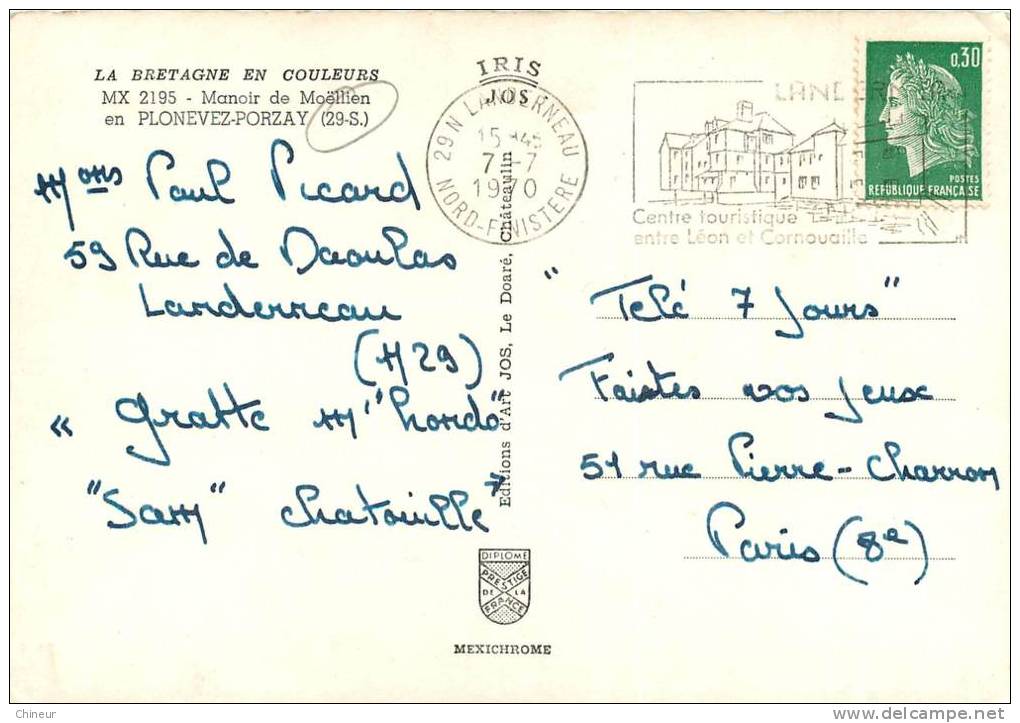 LA BRETAGNE EN COULEURS
MX 2195 - Manoir de Moëllien
en PLONEVEZ-PORZAY (29-S.)
IRIS
JOS
29N LANDERNEAU
15 H45
7 - 7
1970
NORD-FINISTERE
LANDERNEAU
Centre touristique
entre Léon et Cornouaille
0,30
POSTES
REPUBLIQUE FRANÇAISE
Mons Paul Picard
59 Rue de Daoulas
Landerneau
(N 29)
« Gratte m' "hondo"
"Sam" chatouille »
Editions d'Art JOS, Le Doaré, Châteaulin
"Telé 7 Jours"
Faistes vos Jeux
51 rue Pierre-Charron
Paris (8e)
DIPLOME
PRESTIGE
DE LA
FRANCE
MEXICHROME
Chineur
www.delcampe.net